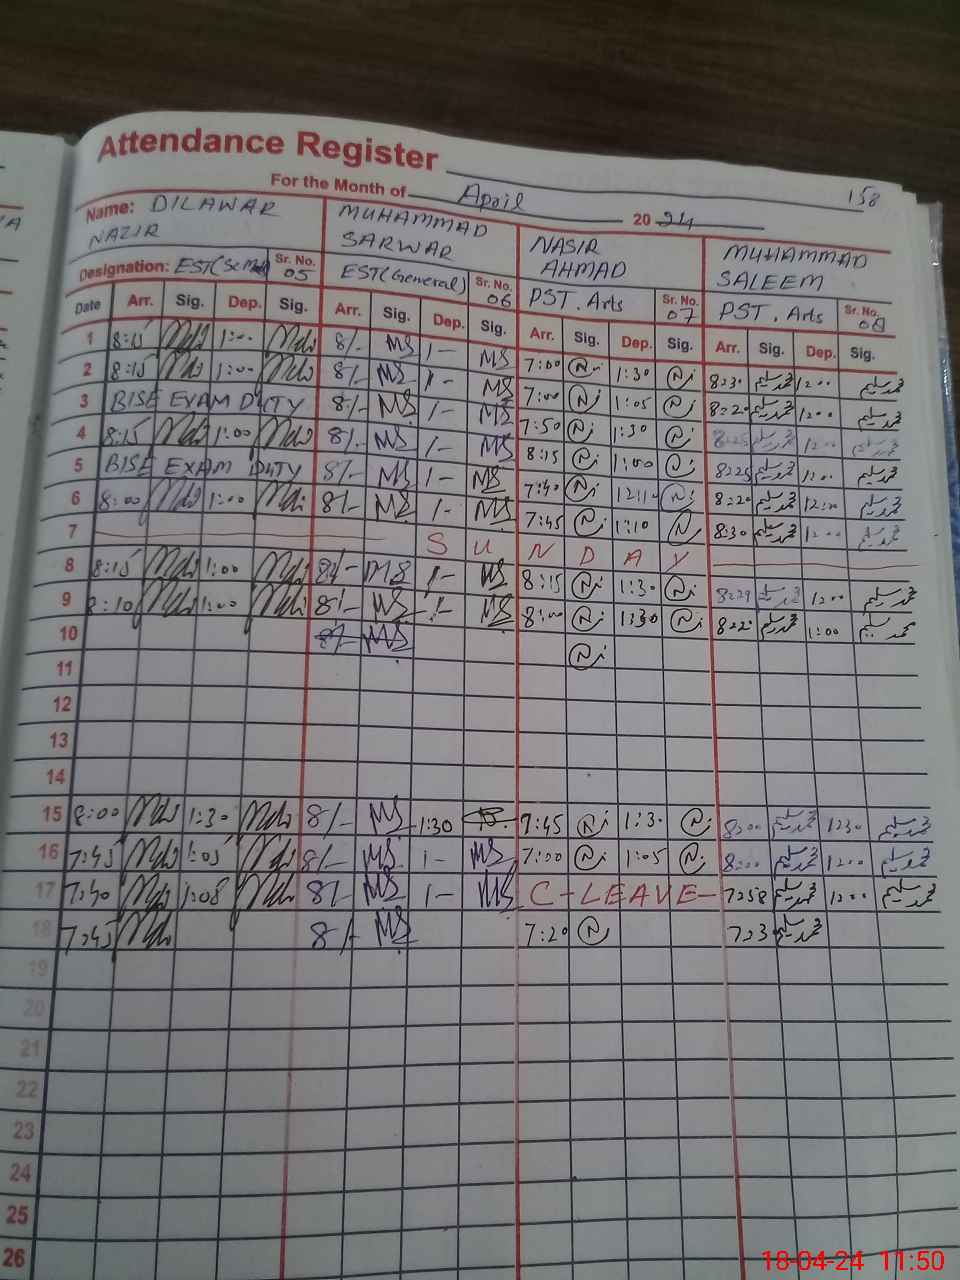 Attendance Register
158
For the Month of April 2024
Name: DILAWAR NAZIR MUHAMMAD SARWAR NASIR AHMAD MUHAMMAD SALEEM
Designation: EST Sr. No. 05 EST(General) Sr. No. 06 PST. Arts Sr. No. 07 PST. Arts Sr. No. 08
Date Arr. Sig. Dep. Sig. Arr. Sig. Dep. Sig. Arr. Sig. Dep. Sig. Arr. Sig. Dep. Sig.
1 8:15 1:00 8/- MS 1- MS 7:00 1:30 8:30 محمد سلیم 12:00 محمد سلیم
2 8:15 1:00 8/- MS 1- MS 7:00 1:05 8:20 محمد سلیم 12:00 محمد سلیم
3 BISE EXAM DUTY 8/- MS 1- MS 7:50 1:30 8:25 محمد سلیم 12:00 محمد سلیم
4 8:15 1:00 8/- MS 1- MS 8:15 1:00 8:25 محمد سلیم 12:00 محمد سلیم
5 BISE EXAM DUTY 8/- MS 1- MS 7:40 12:10 8:20 محمد سلیم 12:00 محمد سلیم
6 8:00 1:00 8/- MS 1- MS 7:45 1:10 8:30 محمد سلیم 12:00 محمد سلیم
7 SUNDAY
8 8:15 1:00 8/- MS 1- MS 8:15 1:30 8:29 محمد سلیم 12:00 محمد سلیم
9 8:10 1:00 8/- MS 1- MS 8:00 1:30 8:20 محمد سلیم 1:00 محمد سلیم
10 8/- MS
11
12
13
14
15 8:00 1:30 8/- MS 1:30 7:45 1:30 8:00 محمد سلیم 12:30 محمد سلیم
16 7:45 1:05 8/- MS 1- MS 7:00 1:05 8:00 محمد سلیم 12:00 محمد سلیم
17 7:40 1:08 8/- MS 1- MS C-LEAVE- 7:58 محمد سلیم 12:00 محمد سلیم
18 7:45 8/- MS 7:20 محمد سلیم
19
20
21
22
23
24
25
26
18-04-24 11:50